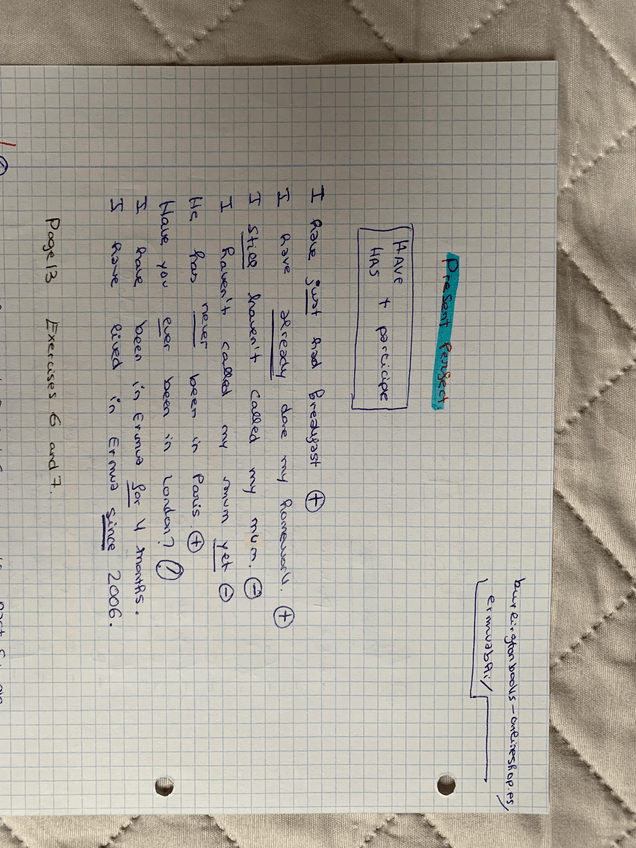 burlingtonbooks-onlineshop.es/
ermuabhi/
Present Perfect.
HAVE
HAS + participe
I have just had breakfast +
I have already done my homework. +
I still haven't called my mum. -
I haven't called my mum yet -
He has never been in Paris. +
Have you ever been in London? /
I have been in Ermua for 4 months.
I have lived in Ermua since 2006.
Page 13 Exercises 6 and 7.